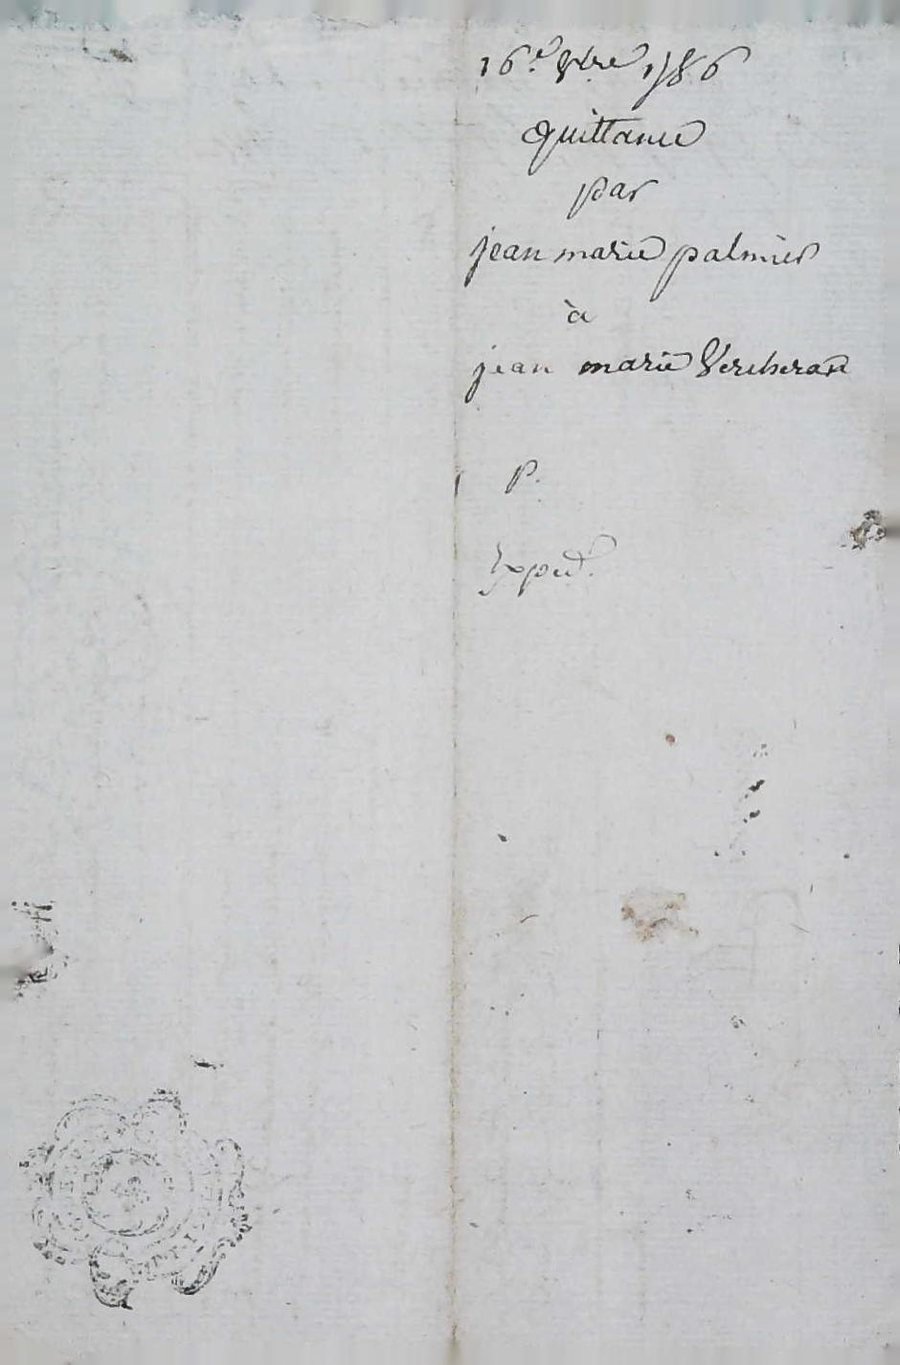 16.e 8bre 1786
quittance
par
jean marie palmier
à
jean marie Vercherat
P.
Exped.